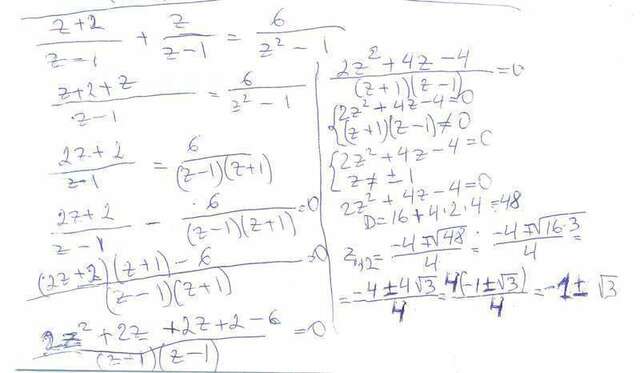 (z+2)/(z-1) + z/(z-1) = 6/(z² - 1)
(z+2+z)/(z-1) = 6/(z² - 1)
(2z+2)/(z-1) = 6/((z-1)(z+1))
(2z+2)/(z-1) - 6/((z-1)(z+1)) = 0
((2z+2)(z+1) - 6)/((z-1)(z+1)) = 0
(2z² + 2z + 2z + 2 - 6)/((z-1)(z-1)) = 0
(2z² + 4z - 4)/((z+1)(z-1)) = 0
{2z² + 4z - 4 = 0
(z+1)(z-1) ≠ 0
{2z² + 4z - 4 = 0
z ≠ ±1
2z² + 4z - 4 = 0
D = 16 + 4·2·4 = 48
z₁,₂ = (-4 ∓ √48)/4 = (-4 ∓ √(16·3))/4 =
= (-4 ± 4√3)/4 = 4(-1 ± √3)/4 = -1 ± √3